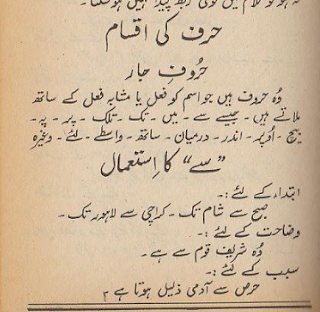 نہ ہو تو کلام میں کوئی ربط پیدا نہیں ہو سکتا۔
حرف کی اقسام
حُروفِ جار
وُہ حروف ہیں جو اسم کو فعل یا مشابہ فعل کے ساتھ
ملاتے ہیں۔ جیسے سے۔ میں۔ تک۔ تلک۔ پر۔ پہ۔
بیچ۔ اُوپر۔ اندر۔ درمیان۔ ساتھ۔ واسطے۔ لئے۔ وغیرہ
”سے“ کا اِستعمال
ابتداء کے لئے:۔
صبح سے شام تک۔ کراچی سے لاہور تک۔
وضاحت کے لئے:۔
وُہ شریف قوم سے ہے۔
سبب کے لئے:۔
حرص سے آدمی ذلیل ہوتا ہے ۲